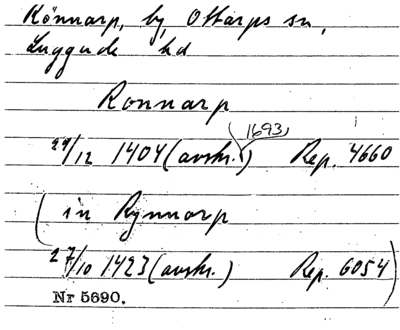 Rönnarp, by, Ottarps sn,
Luggude hd
Ronnarp
29/12 1404 (avskr. 1693) Rep. 4660
(in Rynnarp
27/10 1423 (avskr.) Rep. 6054)
Nr 5690.